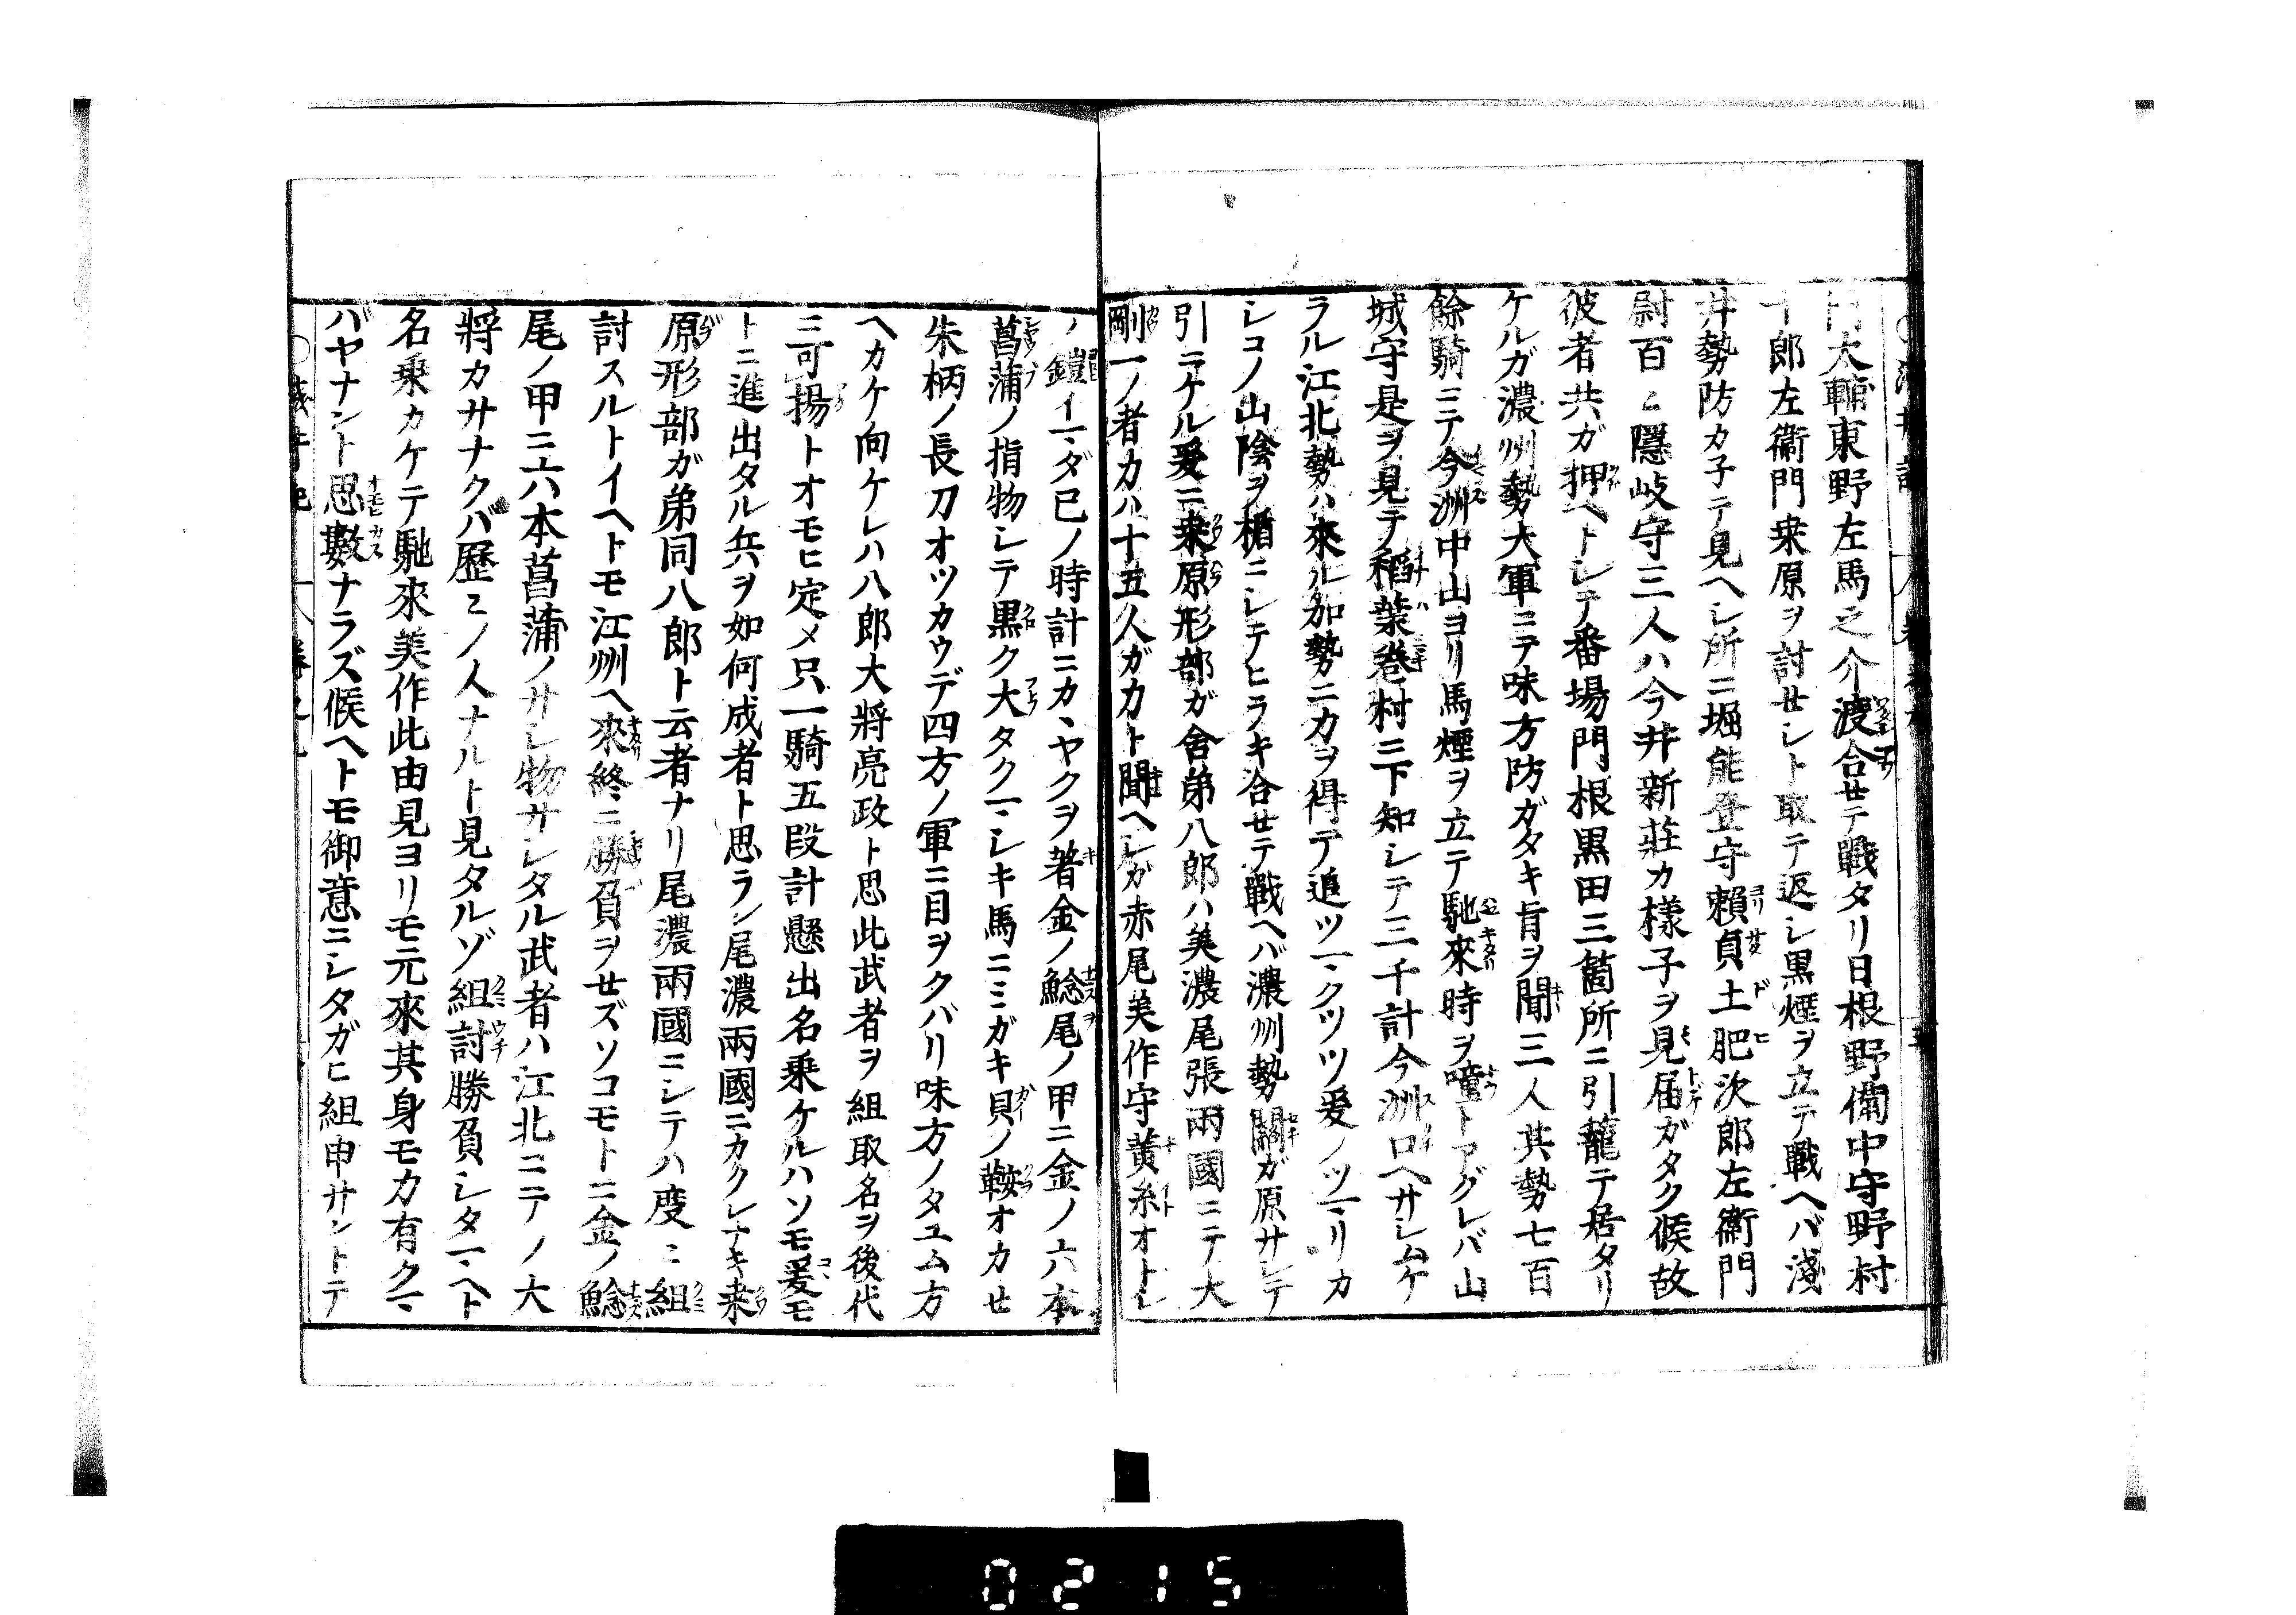 門大輔東野左馬之介渡合せテ戰タリ日根野備中守野村
十郎左衛門桒原ヲ討せレト取テ返シ黒煙ヲ立テ戰ヘバ淺
井勢防カ子テ見ヘシ所ニ堀能登守頼貞土肥次郎左衛門
尉百〻隱岐守三人ハ今井新莊カ様子ヲ見届ガタク候故
彼者共ガ押ヘトシテ番場門根黒田三箇所ニ引籠テ居タリ
ケルガ濃州勢大軍ニテ味方防ガタキ旨ヲ聞三人其勢七百
餘騎ニテ今洲中山ヨリ馬煙ヲ立テ馳來時ヲ噇トアグレバ山
城守是ヲ見テ稻葉巻村ニ下知シテ三千計今洲口ヘサシムケ
ラル江北勢ハ來ル加勢ニカヲ得テ追ツマクツツ爰ノツマリカ
シコノ山陰ヲ楯ニシテヒラキ合せテ戰ヘバ濃州勢關ガ原サシテ
引ニケル爰ニ桒原形部ガ舍弟八郎ハ美濃尾張兩國ニテ大
剛一ノ者カハ十五人ガカト聞ヘシガ赤尾美作守黄糸オトシ
ノ鎧イマダ巳ノ時計ニカヽヤクヲ著金ノ鯰尾ノ甲ニ金ノ六本
菖蒲ノ指物シテ黒ク大タクマシキ馬ニミガキ貝ノ鞍オカせ
朱柄ノ長刀オツカウデ四方ノ軍ニ目ヲクバリ味方ノタユム方
ヘカケ向ケレハ八郎大將亮政ト思此武者ヲ組取名ヲ後代
ニ可揚トオモヒ定メ只一騎五段計懸出名乗ケルハソモ爰モ
トニ進出タル兵ヲ如何成者ト思ラン尾濃兩國ニカクレナキ桒
原形部ガ弟同八郎ト云者ナリ尾濃兩國ニシテハ度〻組
討スルトイヘトモ江州ヘ來終ニ勝負ヲせズソコモトニ金ノ鯰
尾ノ甲ニ六本菖蒲ノサシ物サシタル武者ハ江北ニテノ大
將カサナクバ歴〻ノ人ナルト見タルゾ組討勝負シタマヘト
名乗カケテ馳來美作此由見ヨリモ元來其身モカ有クマ
バヤナント思數ナラズ候ヘトモ御意ニシタガヒ組申サントテ
0215